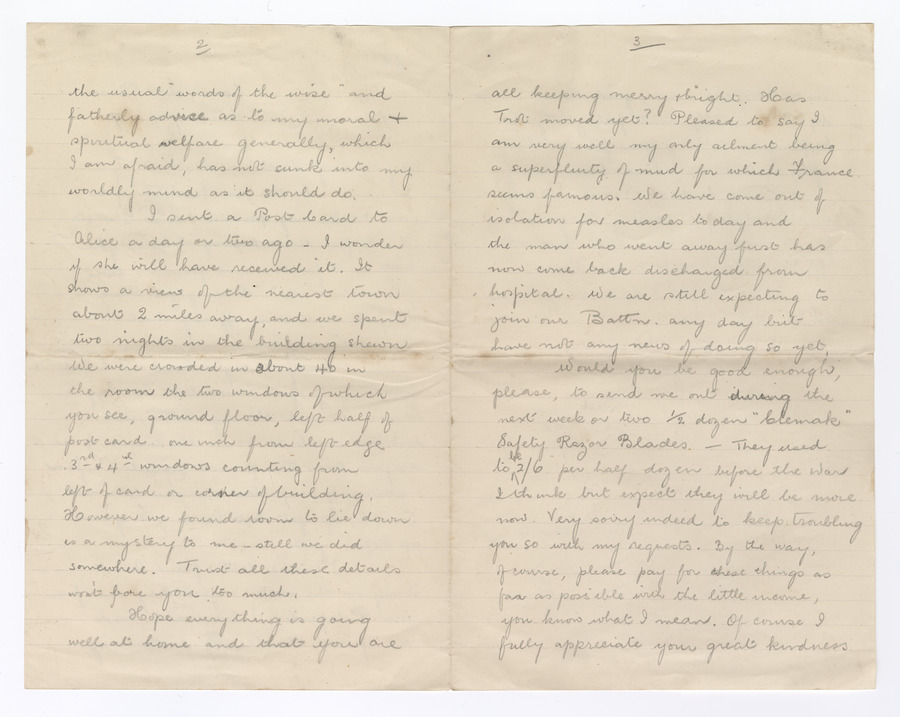 2
the usual "words of the wise" and
fatherly advice as to my moral +
spiritual welfare generally, which
I am afraid, has not sunk into my
worldly mind as it should do.
I sent a Post Card to
Alice a day or two ago – I wonder
if she will have received it. It
shows a view of the nearest town
about 2 miles away, and we spent
two nights in the building shewn
We were crowded in about 40 in
the room the two windows of which
you see, ground floor, left half of
post card one inch from left edge
3rd & 4th windows counting from
left of card or corner of building.
However we found room to lie down
is a mystery to me – still we did
somewhere. Trust all these details
won't bore you too much.
Hope everything is going
well at home and that you are
3
all keeping merry & bright. Has
Trot moved yet? Pleased to say I
am very well my only ailment being
a superfluity of mud for which France
seems famous. We have come out of
isolation for measles today and
the man who went away first has
now come back discharged from
hospital. We are still expecting to
join our Battn. any day but
have not any news of doing so yet.
Would you be good enough,
please, to send me out during the
next week or two 1/2 dozen "Clemak"
Safety Razor Blades. – They used
to be 2/6 per half dozen before the War
I think but expect they will be more
now. Very sorry indeed to keep troubling
you so with my requests. By the way,
of course, please pay for these things as
far as possible with the little income,
you know what I mean. Of course I
fully appreciate your great kindness